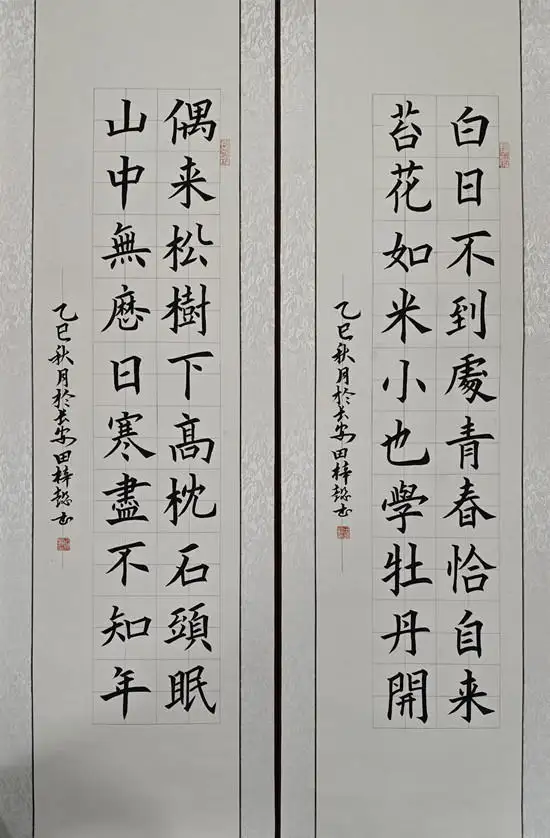 白日不到處青春恰自来
苔花如米小也學牡丹開
乙巳秋月於长安田梓懿书
偶来松樹下高枕石頭眠
山中無歷日寒盡不知年
乙巳秋月於长安田梓懿书